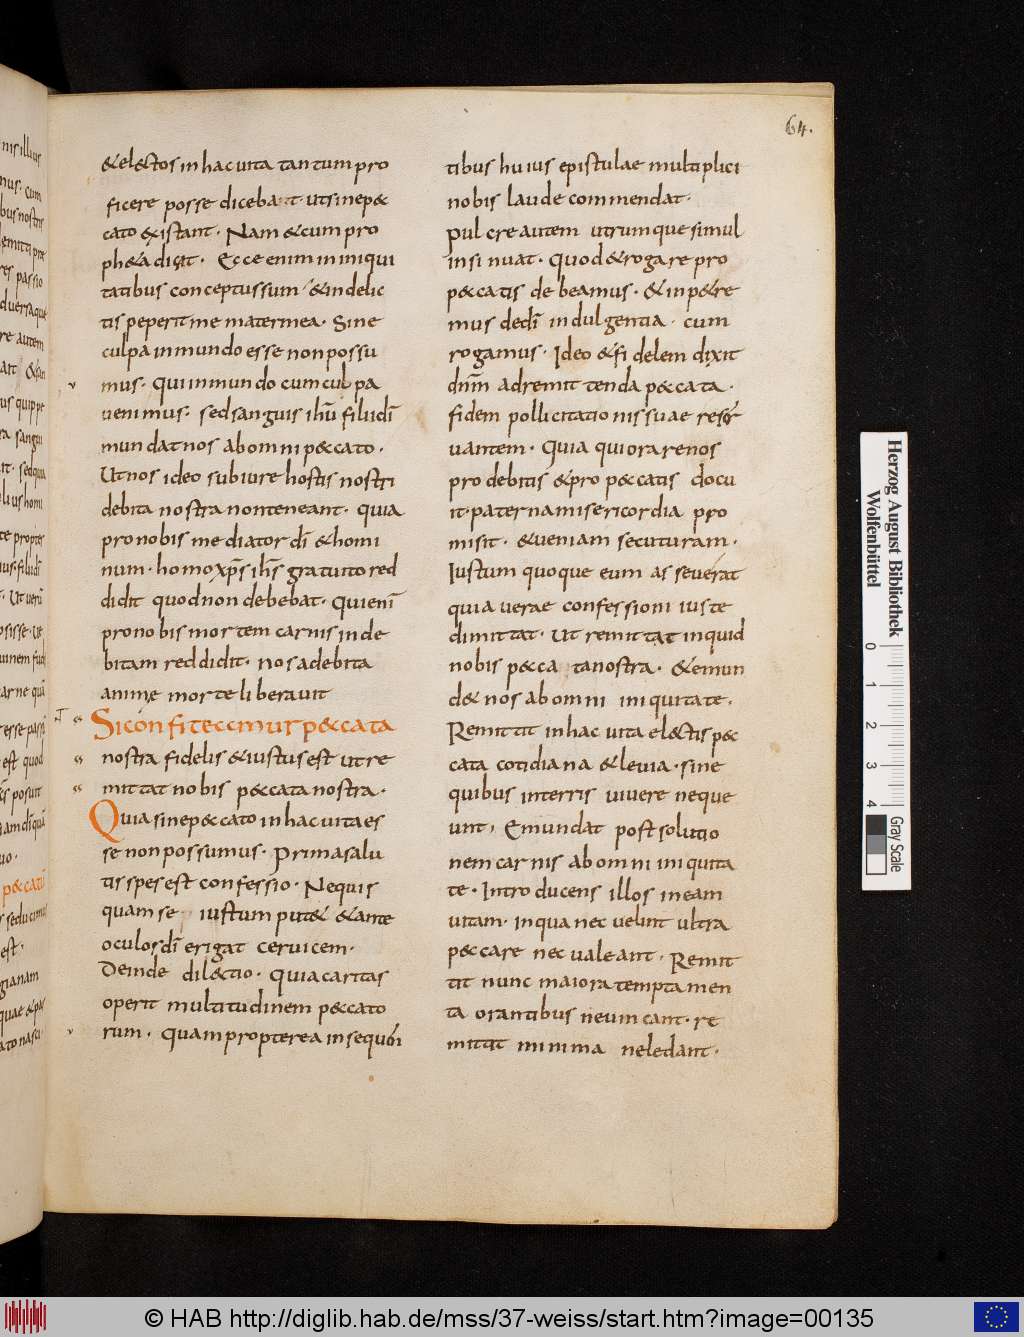 64.
&el&tos inhacuita tantum pro
ficere posse diceba t utsinep&
cato existant. Nam &cum pro
ph&a dicit. Ecce enim ininiqui
tatibus conceptussum &indelic
tis peperit me matermea. Sine
culpa inmundo esse nonpossu
mus. qui inmundo cumculpa
uenimus. sedsanguis ihū filiidī
mundat nos abomni peccato.
Utnos ideo subiure hostis nostri
debita nostra nonteneant. quia
pronobis mediator dī &homi
num. homo xp̄s ih̄s gratuito red
didit quodnon debebat. Quienī
pronobis mortem carnis inde
bitam reddidit. nos adebita
anime morte liberauit
Siconfiteamur p&cata
nostra fidelis &iustus est utre
mittat nobis p&cata nostra.
Quia sinep&cato inhacuita es
se non possumus. Prima salu
tis spes est confessio. Nequis
quam se iustum put& &ante
oculos dī erigat ceruicem.
Deinde dil&tio. Quia caritas
operit multitudinem p&cato
rum. Quam propterea insequēti
tibus huius epistulae multiplici
nobis laude commendat.
Pulcre autem utrumque simul
insinuat. Quod &rogare pro
p&catis debeamus. &inp&re
mus dedī indulgentia. cum
rogamus. Ideo &fidelem dixit
dnm̄ adremittenda p&cata.
fidem pollicitationis suae reser
uantem. Quia qui orare nos
pro debitis &pro p&catis docu
it. paterna misericordia pro
misit. &ueniam secuturam.
Iustum quoque eum asseuerat
quia uerae confessioni iuste
dimittat. Ut remittat inquid
nobis p&ca tanostra. &emun
d& nos abomni iniquitate.
Remittit inhac uita el&tis p&
cata cotidiana &leuia. sine
quibus interris uiuere neque
unt, Emundat post solutio
nem carnis ab omni iniquita
te. Introducens illos ineam
uitam. inqua nec uelint ultra
p&care nec ualeant. Remit
tit nunc maiora temptamen
ta orantibus neuincant. re
mittit minima neledant.
Herzog August Bibliothek
Wolfenbüttel
0 1 2 3 4
Gray Scale
© HAB http://diglib.hab.de/mss/37-weiss/start.htm?image=00135